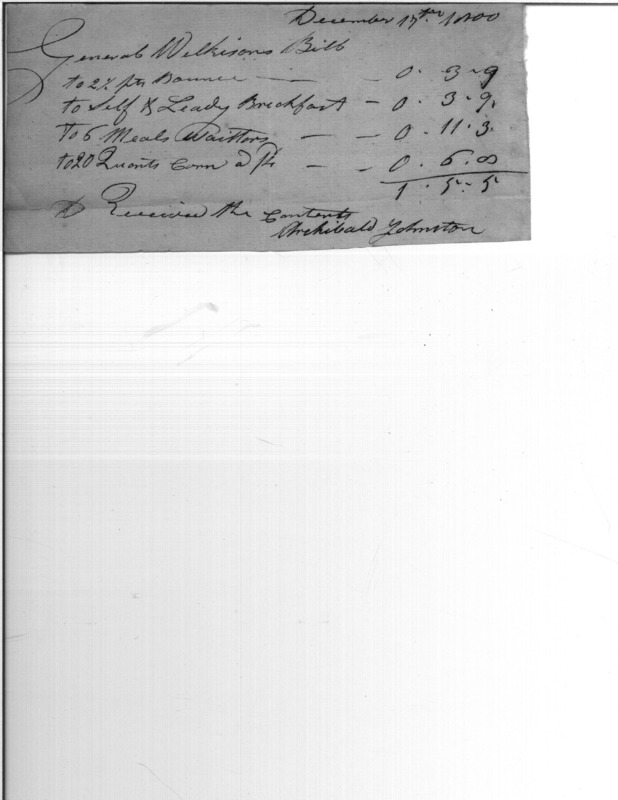 December 17th. 1800
General Wilkisons Bill
to 2½ pts Bounce — — 0. 3. 9
to Self & Leady Breckfast — 0. 3. 9.
To 6 Meals Waitters — — 0. 11. 3.
to 20 Quarts Corn — — 0. 6. 8
1. 5. 5
Received the Contents
Archibald Johnston